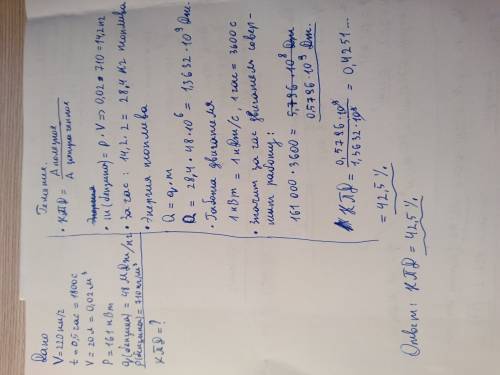 Дано
V = 220 км/ч
t = 0,5 час = 1800 с
V = 20 л = 0,02 м³
P = 161 кВт
q(бензина) = 48 МДж/кг
ρ(бензина) = 710 кг/м³
КПД = ?
Решение.
• КПД = A полезное / A затраченное
• m(бензина) = ρ · V => 0,02 · 710 = 14,2 кг
• За час: 14,2 · 2 = 28,4 кг топлива
• Энергия топлива
Q = q · m
Q = 28,4 · 48 · 10⁶ = 1,3632 · 10⁹ Дж.
• Работа двигателя
1 кВт = 1 кДж/с, 1 час = 3600 с
• Значит за час двигатель совер-
шит работу:
161 000 · 3600 = 5,796 · 10⁸ Дж
0,5796 · 10⁹ Дж.
КПД = 0,5796 · 10⁹ / 1,3632 · 10⁹ = 0,4251...
= 42,5 %
Ответ: КПД = 42,5 %